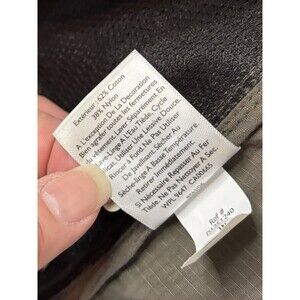 Extérieur: 62% Coton
38% Nylon
A L'exception De La Decoration
Bien agrafer toutes les fermetures
du vêtement. Laver Séparément En
Lave-Linge A L'Eau Tiède, Cycle
Délicat. Utiliser Une Lessive Douce.
Rincer A Fond. Ne Pas Utiliser
De Javellisant. Sécher Au
Sèche-Linge A Basse Température.
Retirer Immédiatement.
Si Nécessaire, Repasser A Fer
Tiède. Ne Pas Nettoyer A Sec.
WPL 9647 CA00665
Ref #